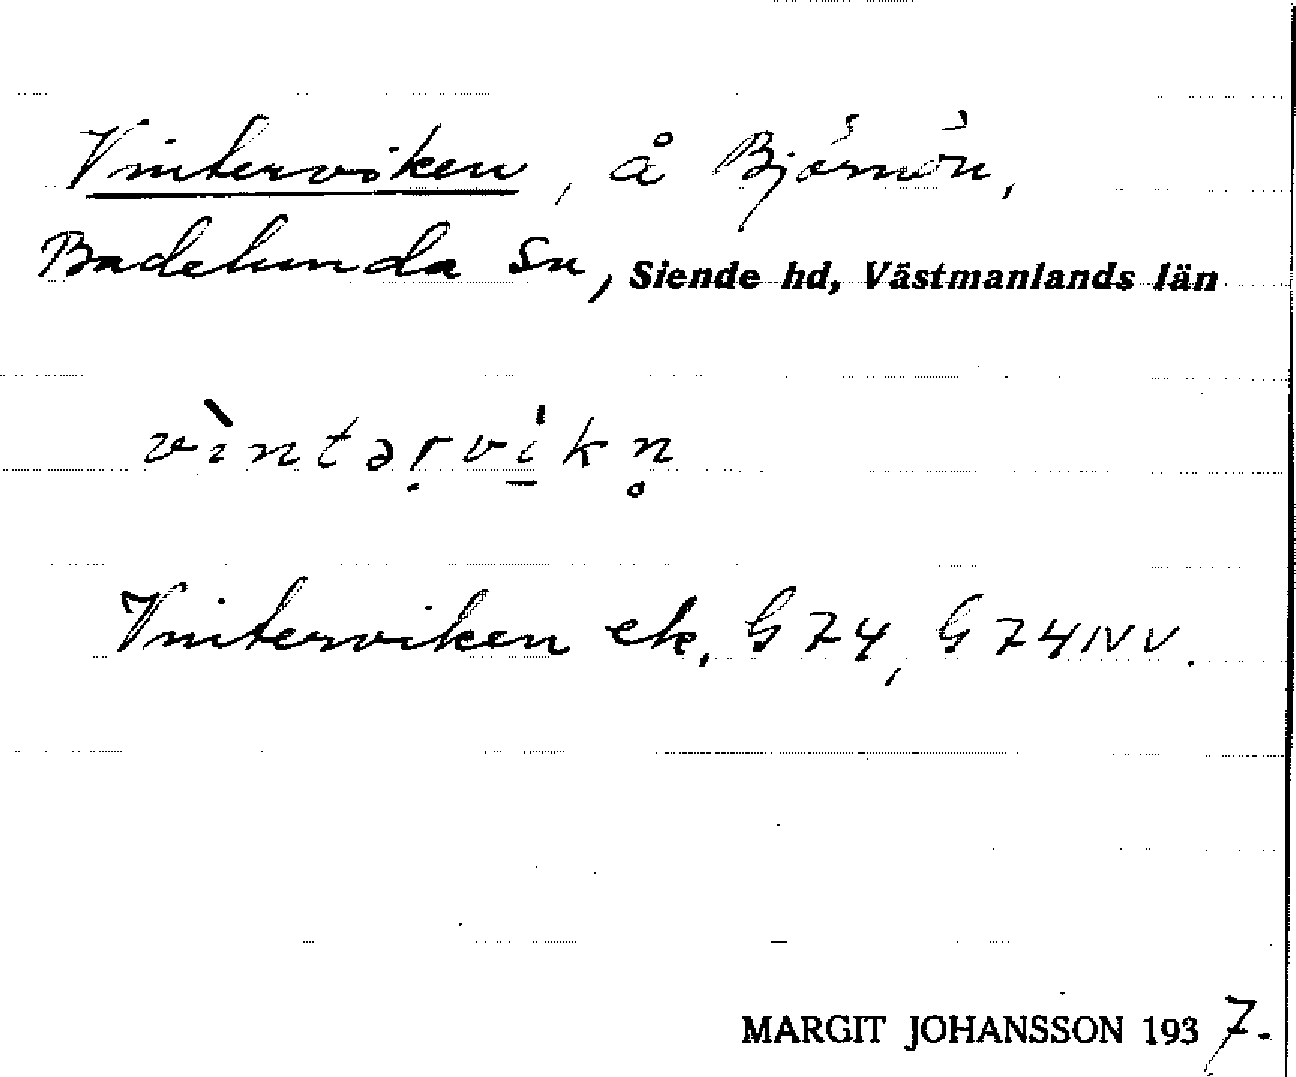 Vinterviken, å Björnön,
Badelunda Sn, Siende hd, Västmanlands län
vìntəṛvi̱̍kn̥
Vinterviken ek, G 74, G 74 NV.
MARGIT JOHANSSON 1937.